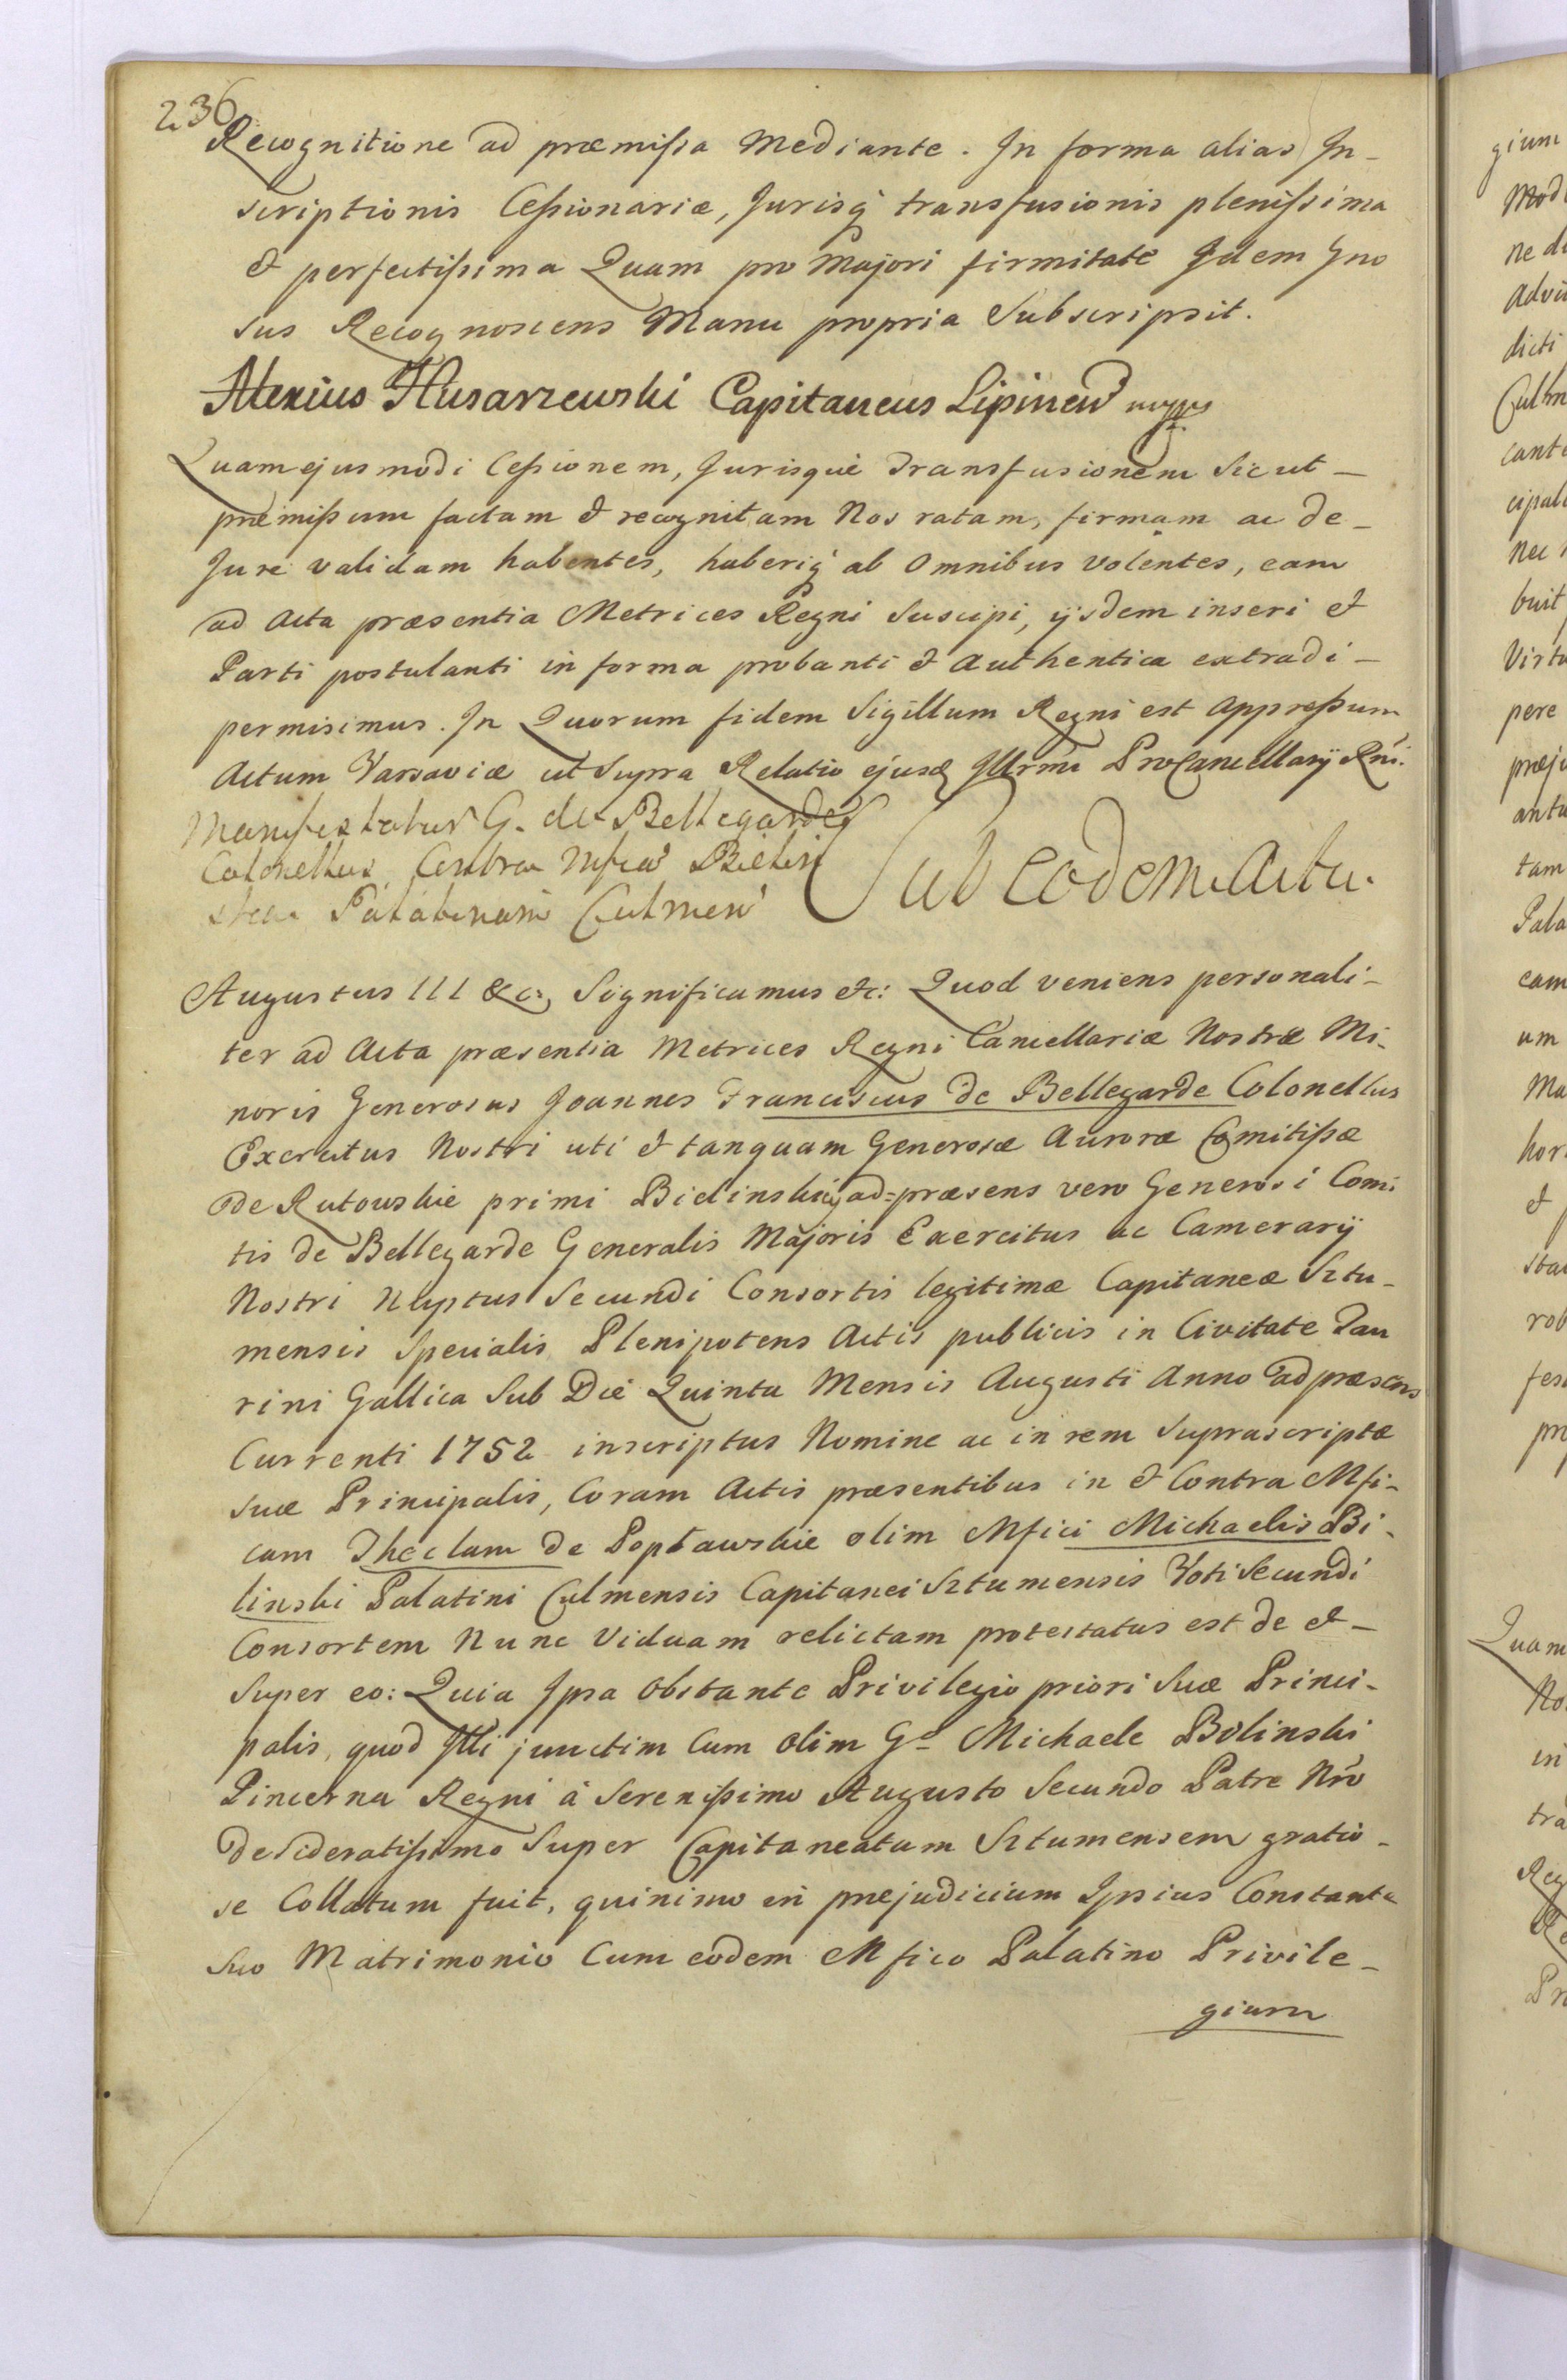 236
Recognitione ad præmissa Mediante. In forma alias In-
scriptionis Cessionariæ, Jurisq transfusionis plenissima
& perfectissima Quam pro Majori firmitate Idem Gno
sus Recognoscens Manu propria Subscripsit.
Alexius Husarzewski Capitaneus Lipinen mppr
Quam ejusmodi Cessionem, Jurisque Transfusionem Sic ut-
præmissum factam & recognitam Nos ratam, firmam ac de-
Jure validam habentes, haberiq ab Omnibus volentes, eam
ad Acta præsentia Metrices Regni Suscipi, ijsdem inseri et
Parti postulanti in forma probanti & Authentica extradi-
permisimus. In Quorum fidem Sigillum Regni est Appressum
Actum Varsaviæ ut Supra Relatio ejusd Illrmi ProCancellarij Rni.
Manifestatur G. de Bellegarde
Colonellus Contra Mficam Bielin
skca Palatinam Culmen
Sub eodem Actu.
Augustus III &c, Significamus etc: Quod veniens personali-
ter ad Acta præsentia Metrices Regni Cancellariæ Nostræ Mi-
noris Generosus Joannes Franciscus de Bellegarde Colonellus
Exercitus Nostri uti & tanquam Generosæ Auroræ Comitissæ
de Rutowskie primi Bielinskij ad=præsens vero Generosi Comi
tis de Bellegarde Generalis Majoris Exercitus ac Camerarij
Nostri Nuptus Secundi Consortis legitimæ Capitaneæ Sztu-
mensis Specialis Plenipotens Actis publicis in Civitate Tau
rini Gallica Sub Die Quinta Mensis Augusti Anno ad præsens
Currenti 1752 inscriptus Nomine ac in rem Suprascriptæ
suæ Principalis, Coram Actis præsentibus in & Contra Mfi-
cam Theclam de Peptawskie olim Mfici Michaelis Bi-
linski Palatini Culmensis Capitanei Sztumensis Voti Secundi
Consortem Nunc Viduam relictam protestatus est de et-
Super eo: Quia Ipsa Obstante Privilegio priori Suæ Princi-
palis, quod Illi junctim Cum olim Go Michaele Bolinski
Pincerna Regni à Serenissimo Augusto Secundo Patre Nro
desideratissimo Super Capitaneatum Sztumensem gratio-
se Collatum fuit, quinimo in præjudicium Ipsius Constante
Suo Matrimonio Cum eodem Mfico Palatino Privile-
gium